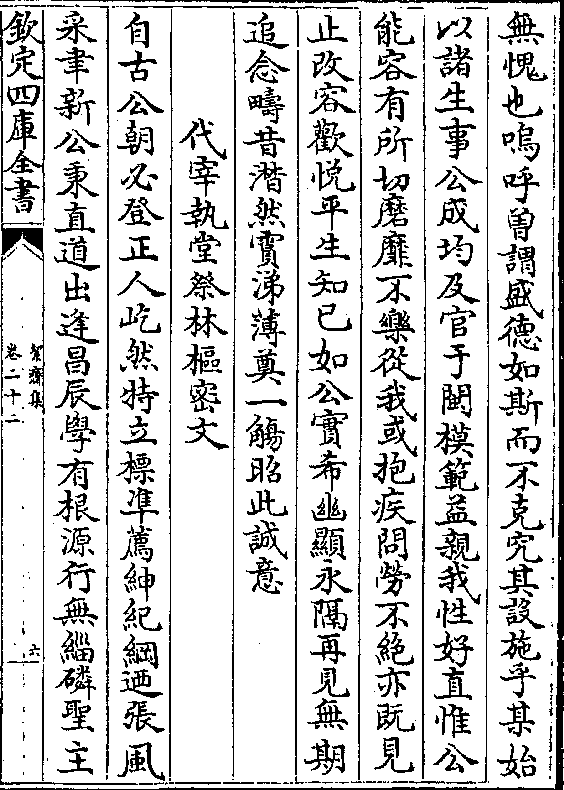 無愧也嗚呼曽謂盛德如斯而不克究其設施乎某始
以諸生事公成均及官于閩模範益親我性好直惟公
能容有所切磨靡不樂從我或抱疾問勞不絶亦既見
止改容歡悦平生知己如公實希幽顯永隔再見無期
追念疇昔潸然賈涕薄奠一觴昭此誠意
代宰執堂祭林樞密文
自古公朝必登正人屹然特立標凖薦紳紀綱迺張風
采聿新公秉直道出逢昌辰學有根源行無緇磷聖主
欽定四庫全書
絜齋集
卷二十二
六